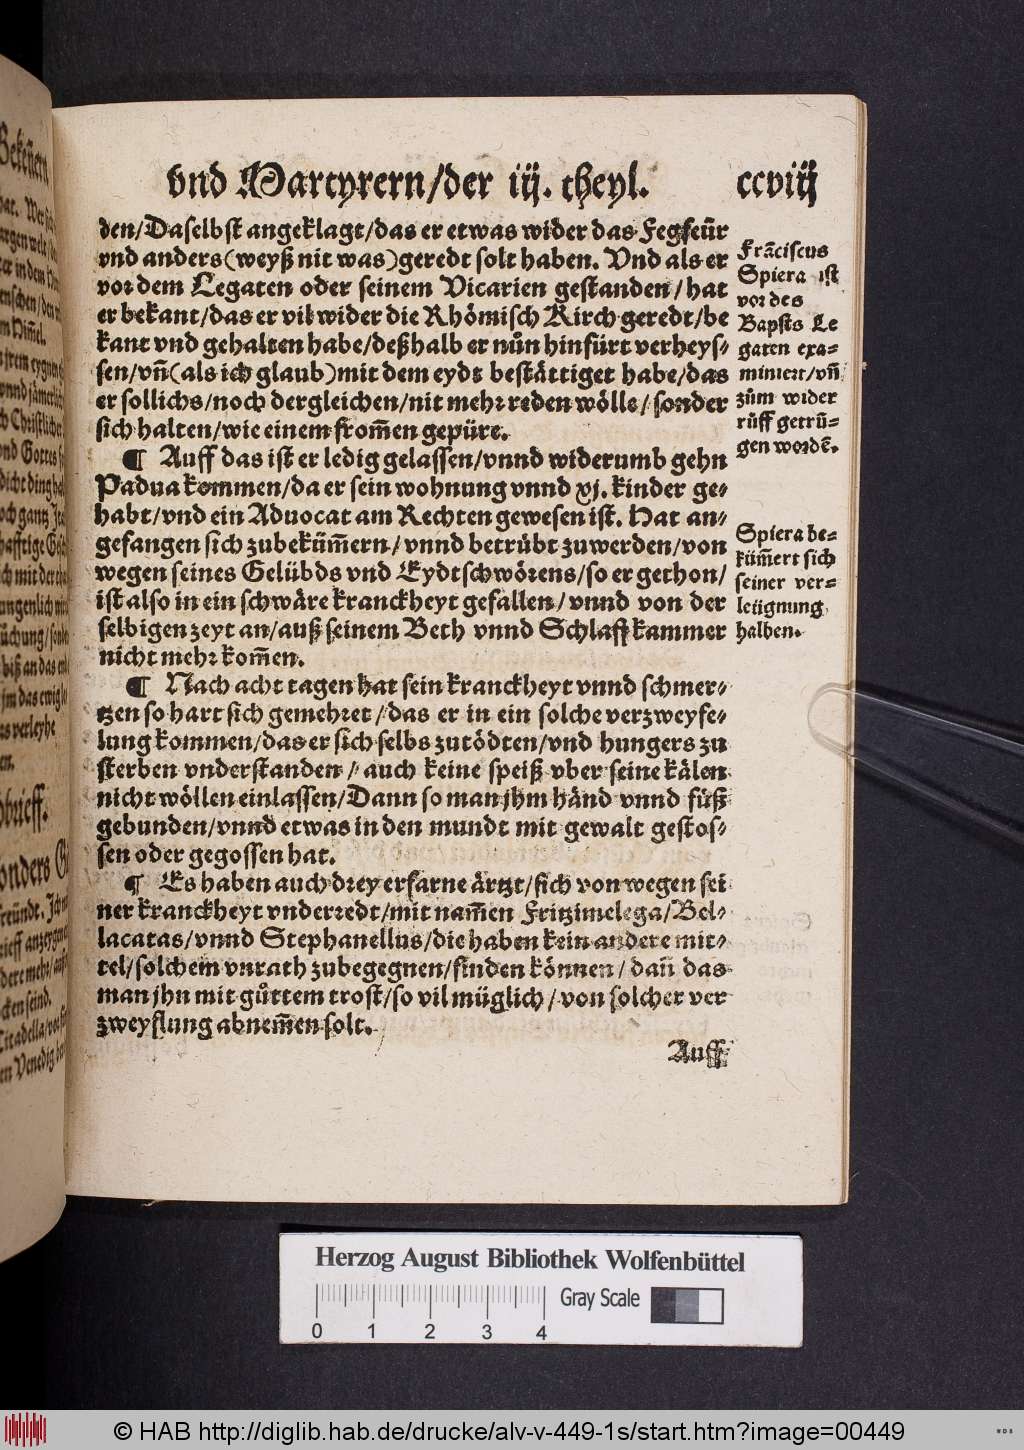 vnd Martyrern/der iij. theyl. ccviij
den/Daselbst angeklagt/das er etwas wider das Fegfeür
vnd anders(weyß nit was)geredt solt haben. Vnd als er
vor dem Legaten oder seinem Vicarien gestanden/hat
er bekant/das er vil wider die Rhömisch Kirch geredt/be
kant vnd gehalten habe/deßhalb er nůn hinfürt verheys-
sen/vñ(als ich glaub)mit dem eydt bestättiget habe/das
er sollichs/noch dergleichen/nit mehr reden wölle/sonder
sich halten/wie einem from̃en gepüre.
¶ Auff das ist er ledig gelassen/vnnd widerumb gehn
Padua kommen/da er sein wohnung vnnd xj. kinder ge-
habt/vnd ein Aduocat am Rechten gewesen ist. Hat an-
gefangen sich zubeküm̃ern/vnnd betrübt zuwerden/von
wegen seines Gelübds vnd Eydtschwörens/so er gethon/
ist also in ein schwäre kranckheyt gefallen/vnnd von der
selbigen zeyt an/auß seinem Beth vnnd Schlaffkammer
nicht mehr kom̃en.
¶ Nach acht tagen hat sein kranckheyt vnnd schmer-
tzen so hart sich gemehret/das er in ein solche verzweyfe-
lung kommen/das er sich selbs zutödten/vnd hungers zu
sterben vnderstanden/auch keine speiß vber seine kälen
nicht wöllen einlassen/Dann so man jhm händ vnnd füß
gebunden/vnnd etwas in den mundt mit gewalt gestos-
sen oder gegossen hat.
¶ Es haben auch drey erfarne ärtzt/sich von wegen sei
ner kranckheyt vnderredt/mit nam̃en Fritzimelega/Bel-
lacatas/vnnd Stephanellus/die haben kein andere mit-
tel/solchem vnrath zubegegnen/finden können/dañ das
man jhn mit gůttem trost/so vil müglich/von solcher ver
zweyflung abnem̃en solt.
Auff
Frãciscus
Spiera ist
vor des
Bapsts Le
gaten exa-
miniert/vñ
zům wider
rüff getrů-
gen wordẽ.
Spiera be-
küm̃ert sich
seiner ver-
leügnung
halben.
Herzog August Bibliothek Wolfenbüttel
Gray Scale
0 1 2 3 4
© HAB http://diglib.hab.de/drucke/alv-v-449-1s/start.htm?image=00449